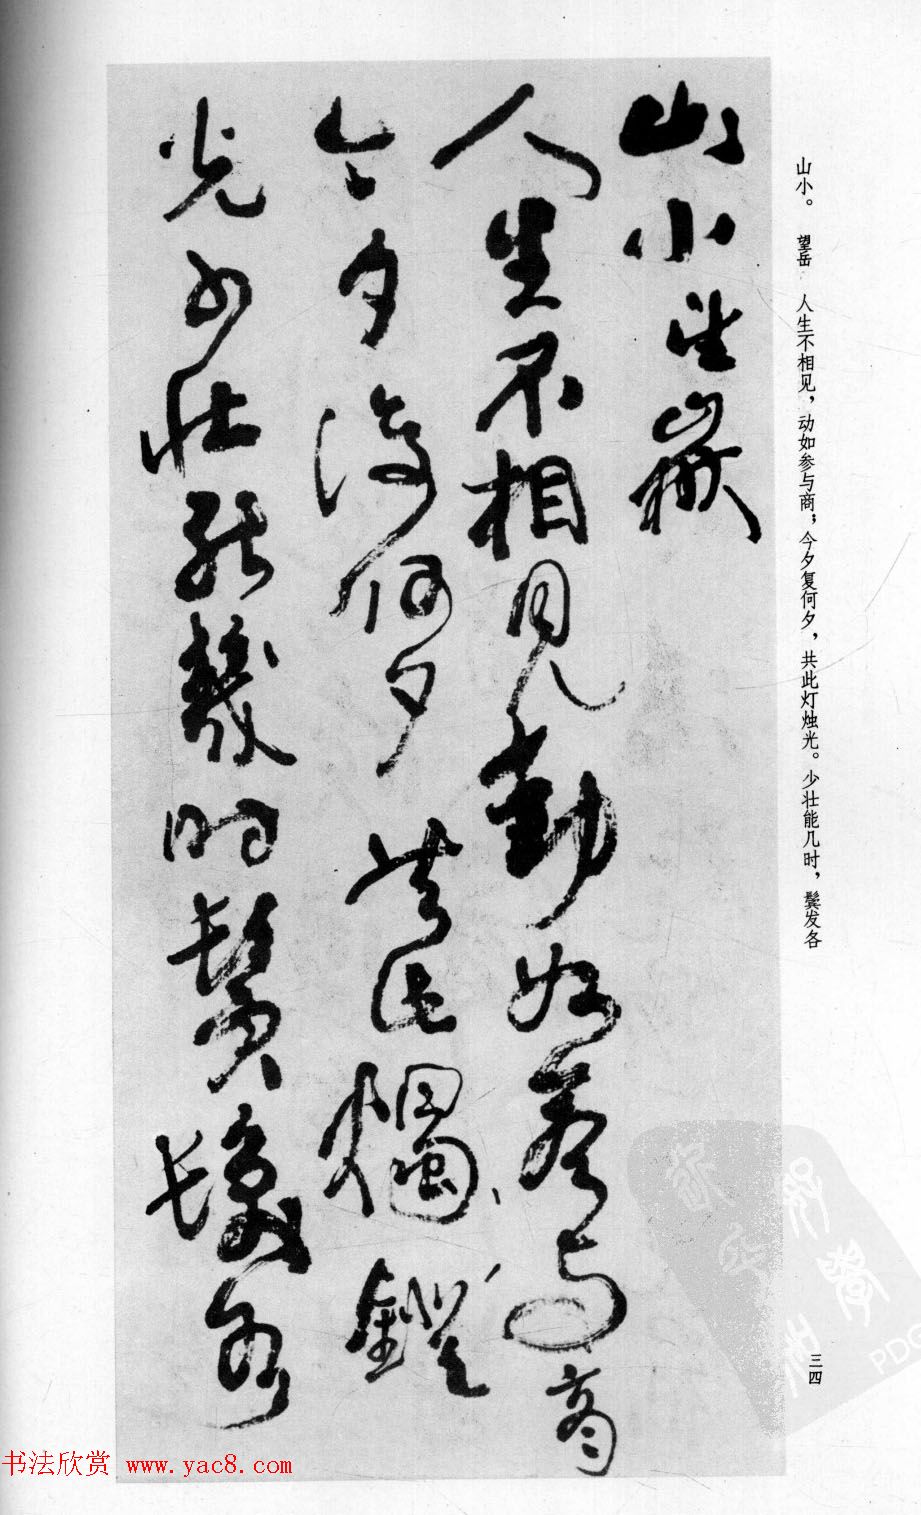 山小。 望岳 人生不相见，动如参与商；今夕复何夕，共此灯烛光。少壮能几时，鬓发各
三四
山小望嶽
人生不相見動如參与商
今夕復何夕共此燭鐙
光少壯能幾時鬢髮各
书法欣赏 www.yac8.com